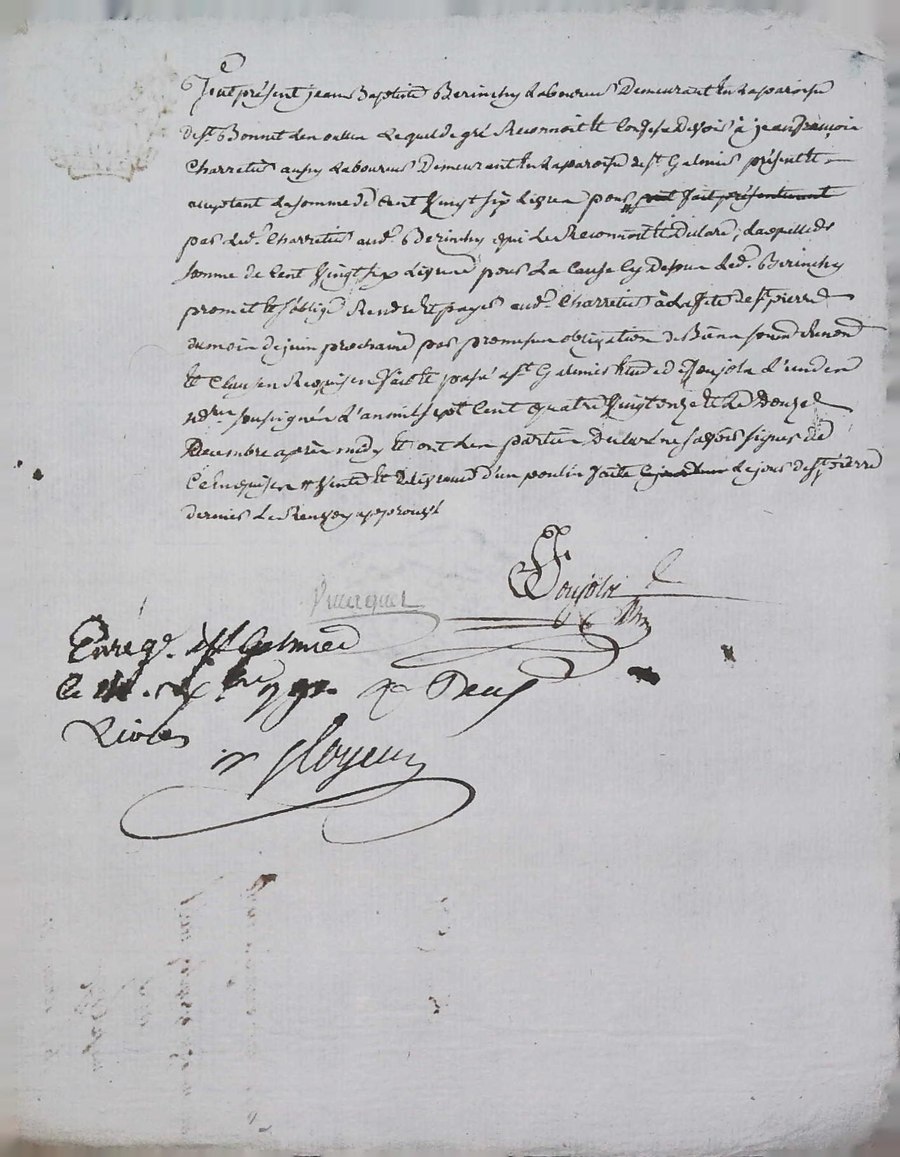 Fut présent jean Baptiste Berinchy Laboureur Demeurant En La paroisse
de st. Bonnet Les oulles Lequel de gré Reconnoit Et Confesse Devoir à jean francois
Charretier aussy Laboureur Demeurant En La paroisse de st. Galmier présent Et
acceptant La somme de Cent Vingt six Livres pour fait présentement
par Led. Charretier aud. Berinchy qui Le Reconnoit Et Déclare, Laquelle de
somme de Cent Vingt six Livres pour La Cause Cy Dessus Led. Berinchy
promet Et s'oblige Rendre Et payer aud. Charretier à La fete de st. pierre
du mois de juin prochaine par promesse obligation de Biens soum. Renon.
Et Clauses Requises fait Et passé a st. Galmier Etude de Poujola L'un des
nores soussignés L'an mil sept Cent quatre Vingt onze Et Le Douze
Decembre après midy Et ont Les parties Déclaré ne savoir signer de
Ce Enquises # Vente Et Délivrance d'un poulin faite Le jour de st. pierre
dernier Le Renvoy approuvé
Poujola
Enregé. à st Galmier
Le 91.
Livres